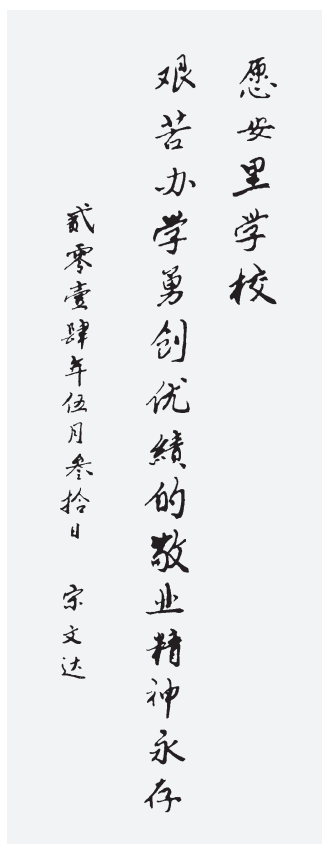 愿安里学校
艰苦办学勇创优绩的敬业精神永存
贰零壹肆年伍月叁拾日 宗文达